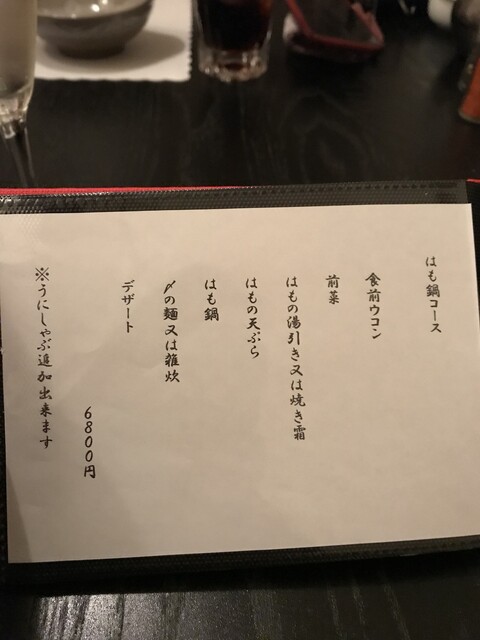 はも鍋コース
食前ウコン
前菜
はもの湯引き又は焼き霜
はもの天ぷら
はも鍋
〆の麺又は雑炊
デザート
6800円
※うにしゃぶ追加出来ます